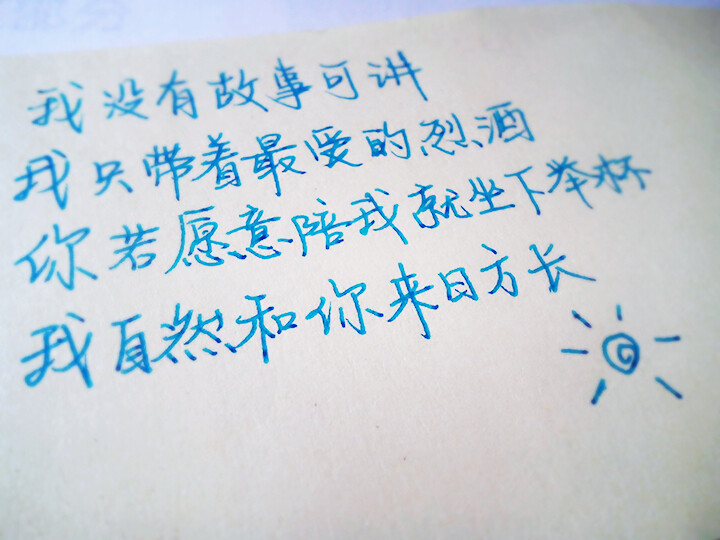 我没有故事可讲
我只带着最爱的烈酒
你若愿意陪我就坐下举杯
我自然和你来日方长